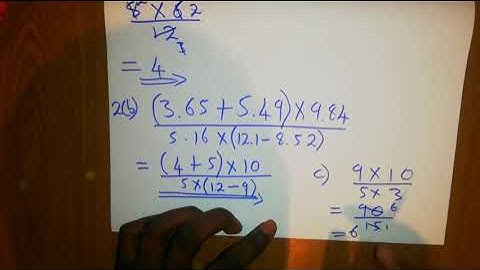 8 × 6 2
12 3
= 4
2(b) (3.65 + 5.49) × 9.84
5.16 × (12.1 - 8.52)
= (4 + 5) × 10
5 × (12 - 9)
c) 9 × 10
5 × 3
= 90 6
15 1
= 6